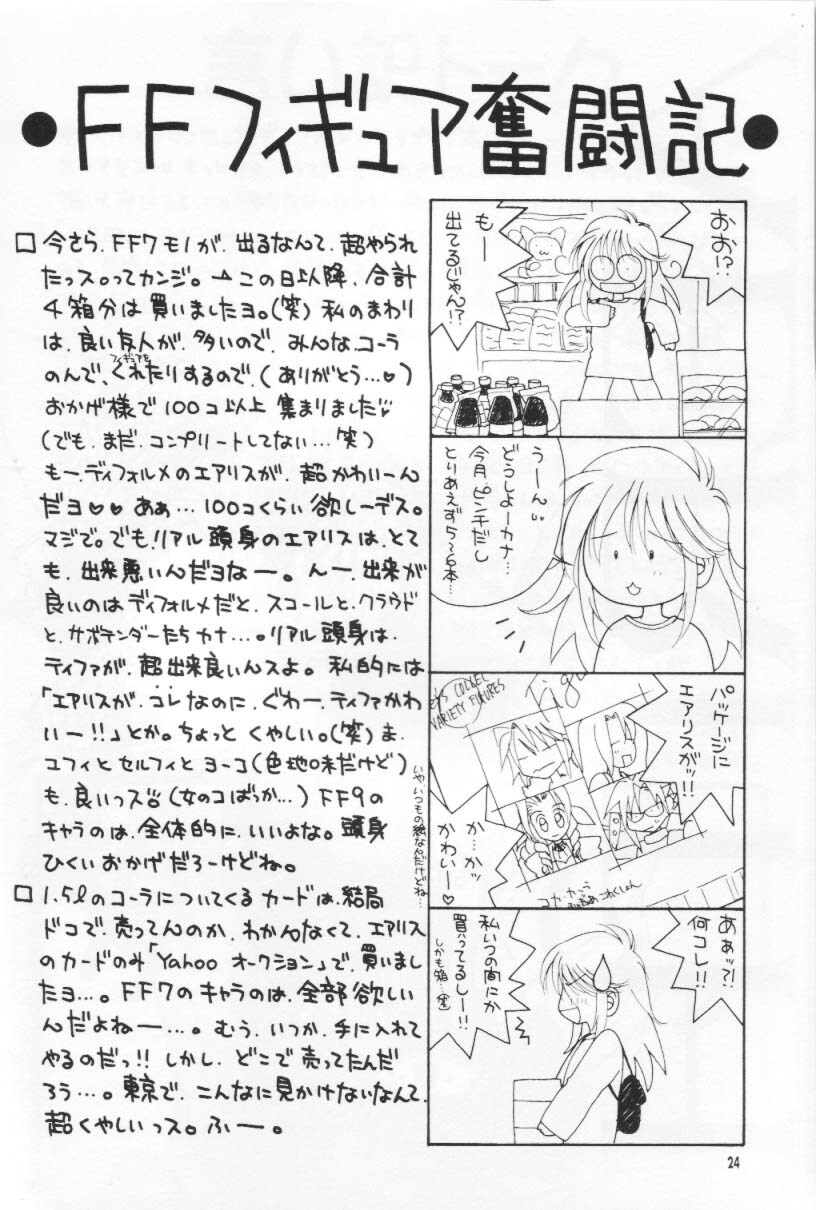 ●FFフィギュア奮闘記●
□今さら、FF7モノが、出るなんて、超やられ
たっス。ってカンジ。→この日以降、合計
4箱分は買いましたヨ。(笑)私のまわり
は、良い友人が、多いので、みんな、コーラ
のんで、フィギュアをくれたりするので、(ありがとう…♡)
おかげ様で100コ以上集まりました
(でも、まだ、コンプリートしてない…笑)
もー、ディフォルメのエアリスが、超かわいーん
だヨ♡♡あぁ…100コくらい欲しーデス。
マジで。でも、リアル頭身のエアリスは、とて
も、出来悪いんだヨなー。んー、出来が
良いのはディフォルメだと、スコールと、クラウド
と、サボテンダーたちカナ…。リアル頭身は、
ティファが、超出来良いんスよ。私的には
「エアリスが、コレなのに、ぐわー、ティファかわ
いー!!」とか。ちょっとくやしい。(笑)ま、
ユフィとセルフィとヨーコ(色地味だけど)
も、良いっス(女のコばっか…)FF9の
キャラのは、全体的に、いいよな。頭身
ひくいおかげだろーけどね。
□1.5ℓのコーラについてくるカードは、結局
ドコで、売ってんのか、わかんなくて、エアリス
のカードのみ「Yahooオークション」で、買いまし
たヨ…。FF7のキャラのは、全部欲しい
んだよねー…。むう、いつか、手に入れて
やるのだっ!!しかし、どこで売ってたんだ
ろう…。東京で、こんなに見かけないなんて、
超くやしいっス。ふー。
おお!?
もー
出てるじゃん!?
うーん
どうしよーカナ…
今月、ピンチだし
とりあえず5~6本…
パッケージに
エアリスがッ!!
VARIETY FIGURES
か…かッ
かわいー♡
いや、いつもの絵なんだけどね…
コカ・コーラ
あぁッ?!
何コレ!!
私いつの間にか
買ってるしー!!
しかも箱…(笑)
24